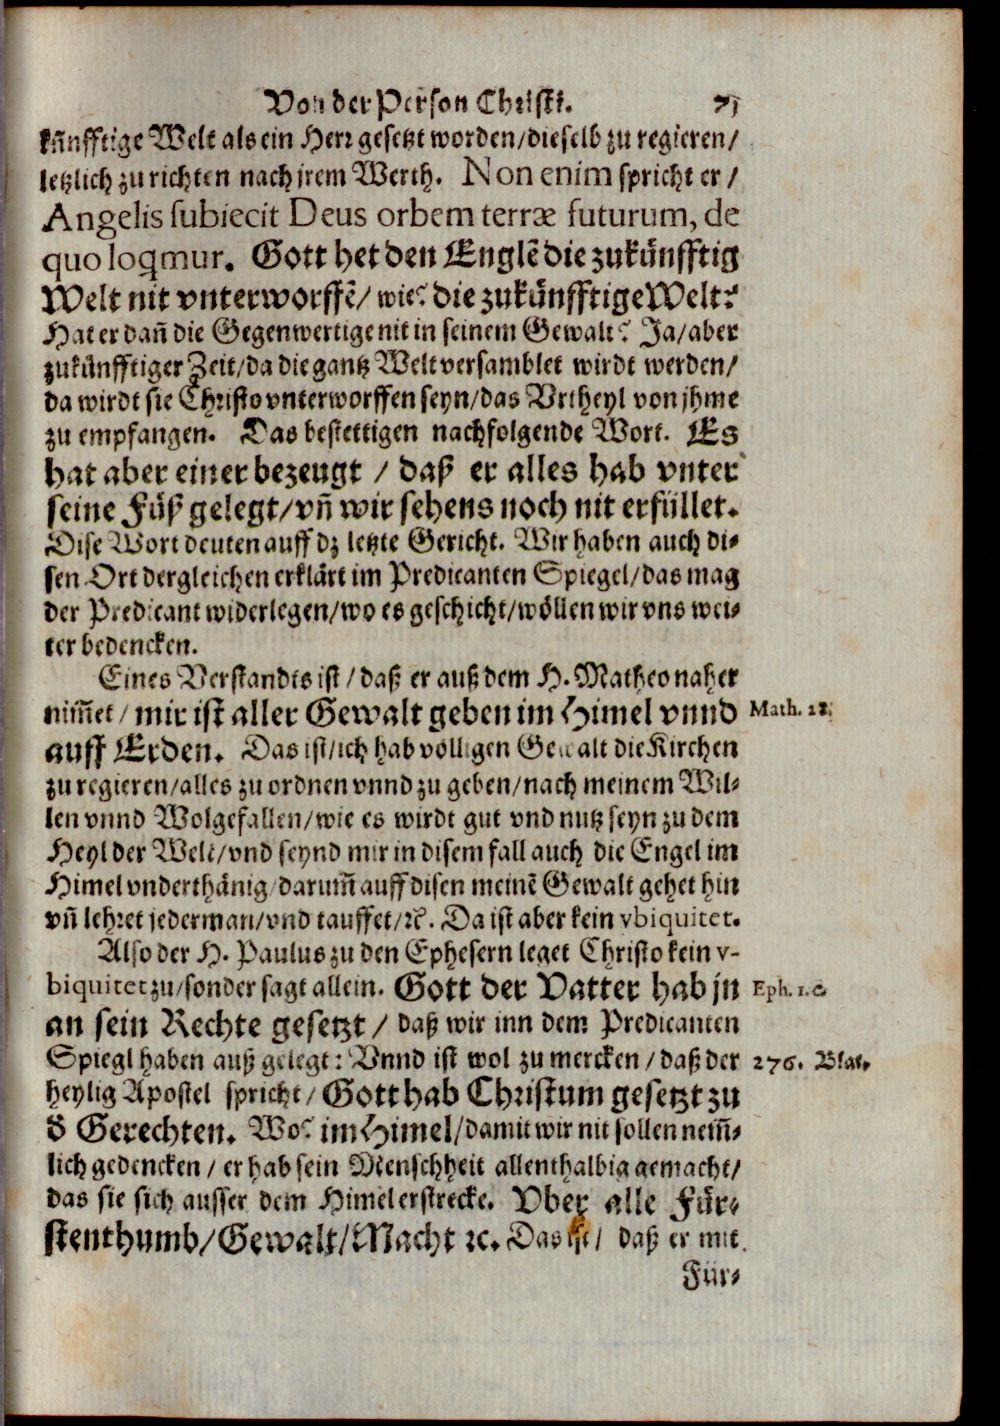 Von der Person Christi. 71
künfftige Welt als ein Herr gesetzt worden/dieselb zu regieren/
letzlich zu richten nach jrem Werth. Non enim spricht er/
Angelis subiecit Deus orbem terræ futurum, de
quo loqmur. Gott het den Englẽ die zukünfftig
Welt nit vnterworffẽ/wie? die zukünfftige Welt?
Hat er dañ die Gegenwertige nit in seinem Gewalt? Ja/aber
zukünfftiger Zeit/da die gantz Welt versamblet wirdt werden/
da wirdt sie Christo vnterworffen seyn/das Vrtheyl von jhme
zu empfangen. Das bestettigen nachfolgende Wort. Es
hat aber einer bezeugt / daß er alles hab vnter
seine Füß gelegt/vñ wir sehens noch nit erfüllet.
Dise Wort deuten auff dz letzte Gericht. Wir haben auch di⸗
sen Ort dergleichen erklärt im Predicanten Spiegel/das mag
der Predicant widerlegen/wo es geschicht/wöllen wir vns wei⸗
ter bedencken.
Eines Verstandts ist / daß er auß dem H. Matheo naher
nim̃et / mir ist aller Gewalt geben im Himel vnnd Math. 28.
auff Erden. Das ist/ich hab volligen Gewalt die Kirchen
zu regieren/alles zu ordnen vnnd zu geben/nach meinem Wil⸗
len vnnd Wolgefallen/wie es wirdt gut vnd nutz seyn zu dem
Heyl der Welt/vnd seynd mir in disem fall auch die Engel im
Himel vnderthänig/darum̃ auff disen meinẽ Gewalt gehet hin
vñ lehret jederman/vnd tauffet/ꝛc. Da ist aber kein vbiquitet.
Also der H. Paulus zu den Ephesern leget Christo kein v-
biquitet zu/sonder sagt allein. Gott der Vatter hab jn Eph. 1. c.
an sein Rechte gesetzt / daß wir inn dem Predicanten
Spiegl haben auß gelegt: Vnnd ist wol zu mercken / daß der 276. Blat.
heylig Apostel spricht / Gott hab Christum gesetzt zu
d̕ Gerechten. Wo? im Himel/damit wir nit sollen nem̃⸗
lich gedencken / er hab sein Menschheit allenthalbig gemacht/
das sie sich ausser dem Himel erstrecke. Vber alle Für⸗
stenthumb/Gewalt/Macht ꝛc. Das ist / daß er mit
Für⸗